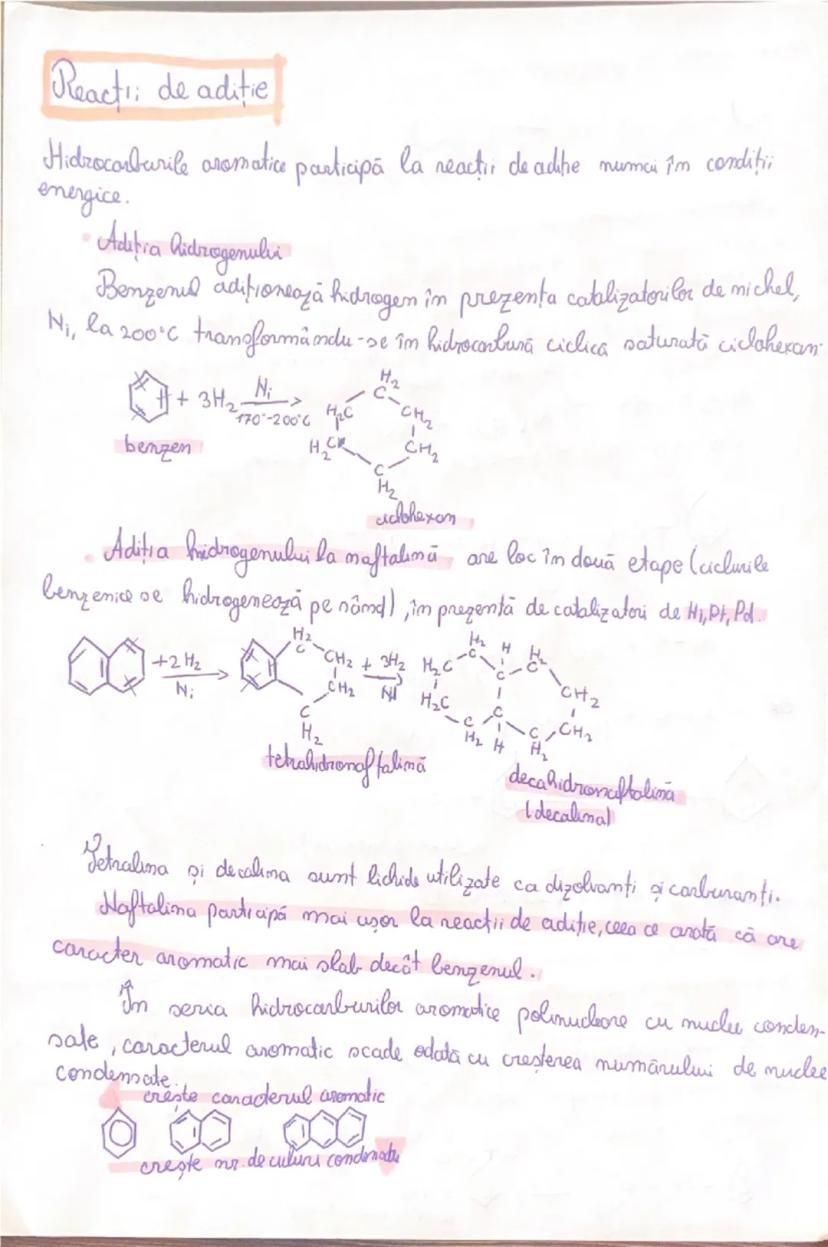 Reacții de adiție
Hidrocarburile aromatice participă la reacții de adiție numai în condiții
energice.
Adiția hidrogenului
Benzenul adiționează hidrogen în prezența catalizatorilor de nichel,
Ni, la 200°C transformându-se în hidrocarbură ciclică saturată ciclohexan.
H2
+ 3H2 Ni H2C C CH2
170°-200°C
benzen H2C CH2
C
H2
ciclohexan
Adiția hidrogenului la naftalină are loc în două etape (ciclurile
benzenice se hidrogenează pe rând), în prezență de catalizatori de Ni, Pt, Pd.
H2 H2 H H2
+2H2 C CH2 + 3H2 H2C C C C CH2
Ni CH2 Ni H2C C CH2
C C C
H2 H2 H H2
tetrahidronaftalină
decahidronaftalină
(decalina)
Tetralina și decalina sunt lichide utilizate ca dizolvanți și carburanți.
Naftalina participă mai ușor la reacții de adiție, ceea ce arată că are
caracter aromatic mai slab decât benzenul.
În seria hidrocarburilor aromatice polinucleare cu nuclee conden-
sate, caracterul aromatic scade odată cu creșterea numărului de nuclee
condensate.
crește caracterul aromatic
crește nr. de cicluri condensate